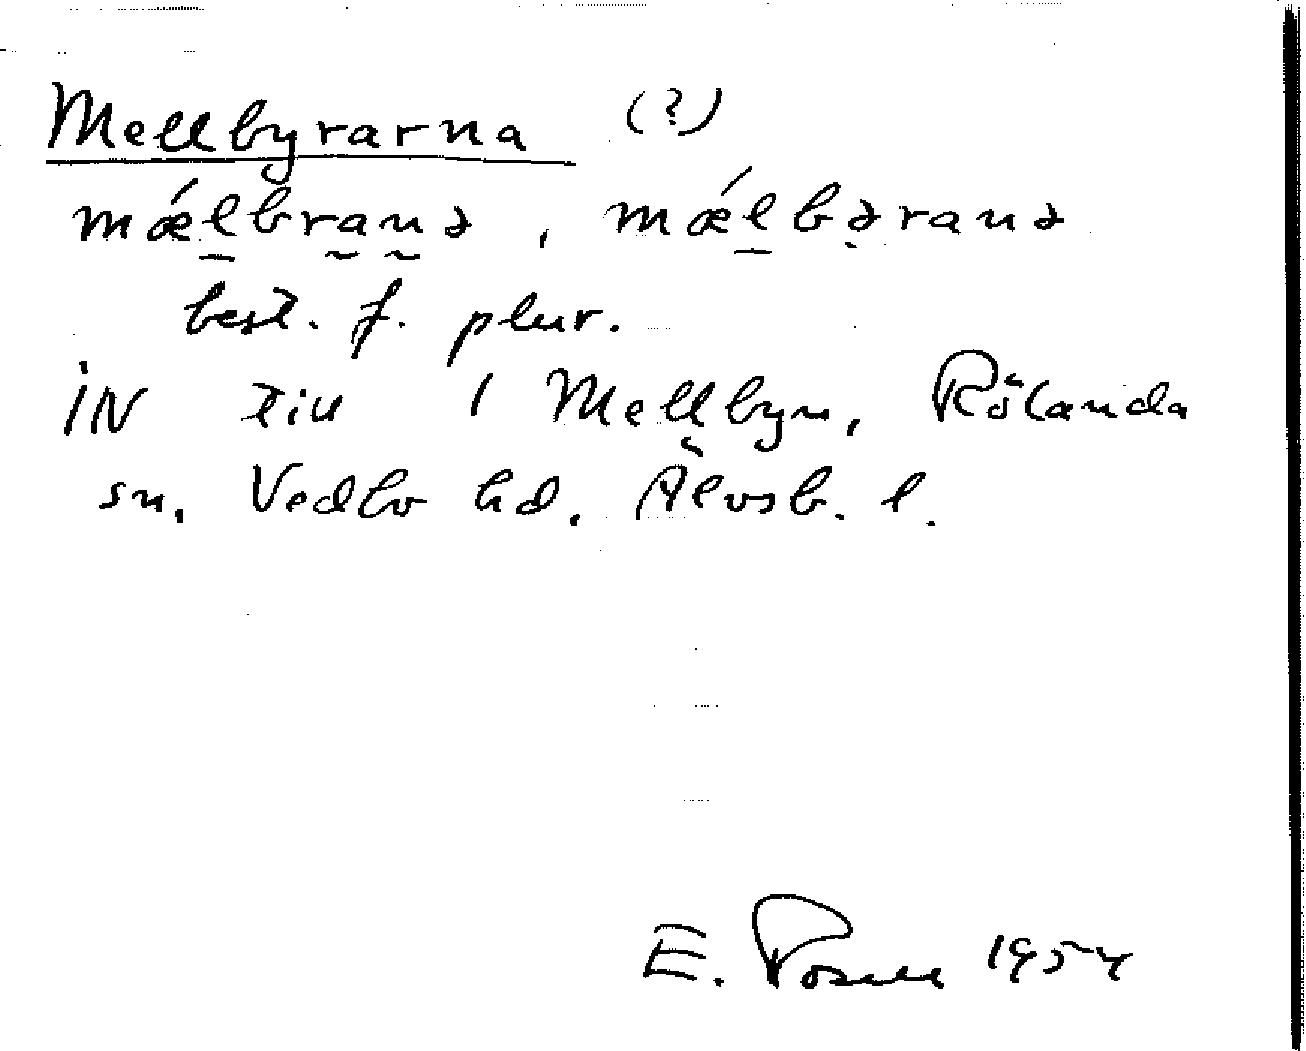 Mellbyrarna (?)
mǽlbranə, mǽlbəranə
best. f. plur.
IN till 1 Mellbyn, Rölanda
sn. Vedbo hd. Älvsb. l.
E. 1954